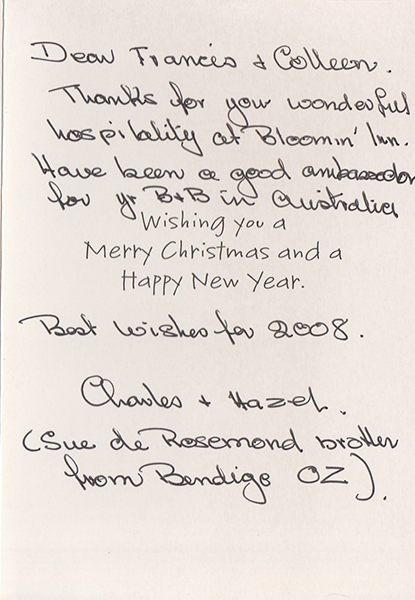 Dear Francis + Colleen.
Thanks for your wonderful
hospitality at Bloomin' Inn.
Have been a good ambassador
for yr B+B in Australia
Wishing you a
Merry Christmas and a
Happy New Year.
Best wishes for 2008.
Charles + Hazel.
(Sue de Rosemond brother
from Bendigo OZ).